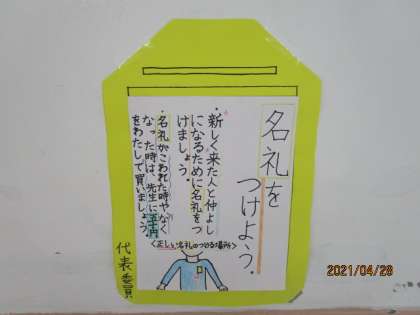 名札を
つけよう。
・新しく来た人と仲よし
になるために名札をつ
けましょう。
・名札がこわれた時やなく
なった時は、先生に五十円
をわたして買いましょう。
＜正しい名札のつける場所＞
代表委員
2021/04/28